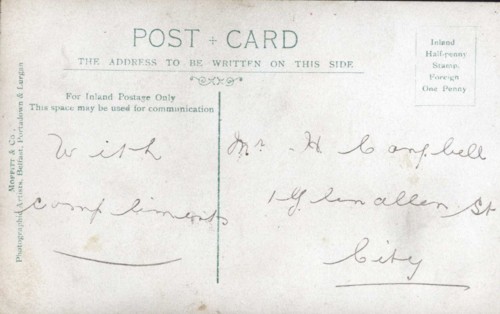 POST CARD
THE ADDRESS TO BE WRITTEN ON THIS SIDE
Inland
Half-penny
Stamp.
Foreign
One Penny
For Inland Postage Only
This space may be used for communication
MOFFITT & Co.,
Photographic Artists, Belfast, Portadown & Lurgan
With
Compliments
Mr. H Campbell
1 Glenallen St
City